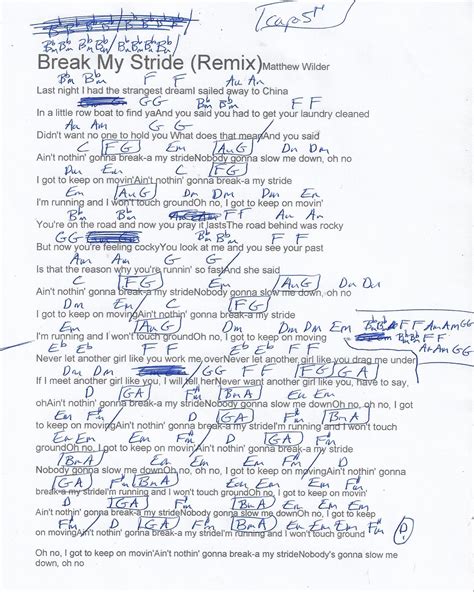 (capo 5th
Bbm Bbm Bbm Bbm / Bbm Bbm Bbm Bbm
Break My Stride (Remix)Matthew Wilder
Bbm Bbm F F Am Am
Last night I had the strangest dreamI sailed away to China
GG GG F F
In a little row boat to find yaAnd you said you had to get your laundry cleaned
Am Am GG
Didn't want no one to hold you What does that meanAnd you said
C FG Em AmG Dm Dm
Ain't nothin' gonna break-a my strideNobody gonna slow me down, oh no
Dm Em C FG
I got to keep on movingAin't nothin' gonna break-a my stride
Em AmG Dm Dm Em
I'm running and I won't touch groundOh no, I got to keep on movin'
Bbm Bbm F F Am Am
You're on the road and now you pray it lastsThe road behind was rocky
GG GG F F
But now you're feeling cockyYou look at me and you see your past
Am Am GG
Is that the reason why you're runnin' so fastAnd she said
C FG Em AmG Dm Dm
Ain't nothin' gonna break-a my strideNobody gonna slow me down, oh no
Dm Em C FG
I got to keep on movingAin't nothin' gonna break-a my stride
Em AmG Dm Dm Em
I'm running and I won't touch groundOh no, I got to keep on movin'
Bbm Bbm F F Am Am GG
Am Am GG
Eb Eb F F Eb Eb
Never let another girl like you work me overNever let another girl like you drag me under
Dm Dm GG F F FG GA
If I meet another girl like you, I will tell herNever want another girl like you, have to say,
D GA F#m BmA Em Em
ohAin't nothin' gonna break-a my strideNobody gonna slow me downOh no, oh no, I got
Em F#m D GA F#m BmA
to keep on movingAin't nothin' gonna break-a my strideI'm running and I won't touch
Em Em Em F#m D GA F#m
groundOh no, I got to keep on movin'Ain't nothin' gonna break-a my stride
BmA Em Em Em F#m D
Nobody gonna slow me downOh no, oh no, I got to keep on movingAin't nothin' gonna
GA F#m BmA Em Em Em F#m
break-a my strideI'm running and I won't touch groundOh no, I got to keep on movin'
D GA F#m BmA Em Em
Ain't nothin' gonna break-a my strideNobody gonna slow me downOh no, oh no, I got to keep
Em F#m D GA F#m BmA Em Em Em F#m D!
on movingAin't nothin' gonna break-a my strideI'm running and I won't touch ground
Oh no, I got to keep on movin'Ain't nothin' gonna break-a my strideNobody's gonna slow me
down, oh no